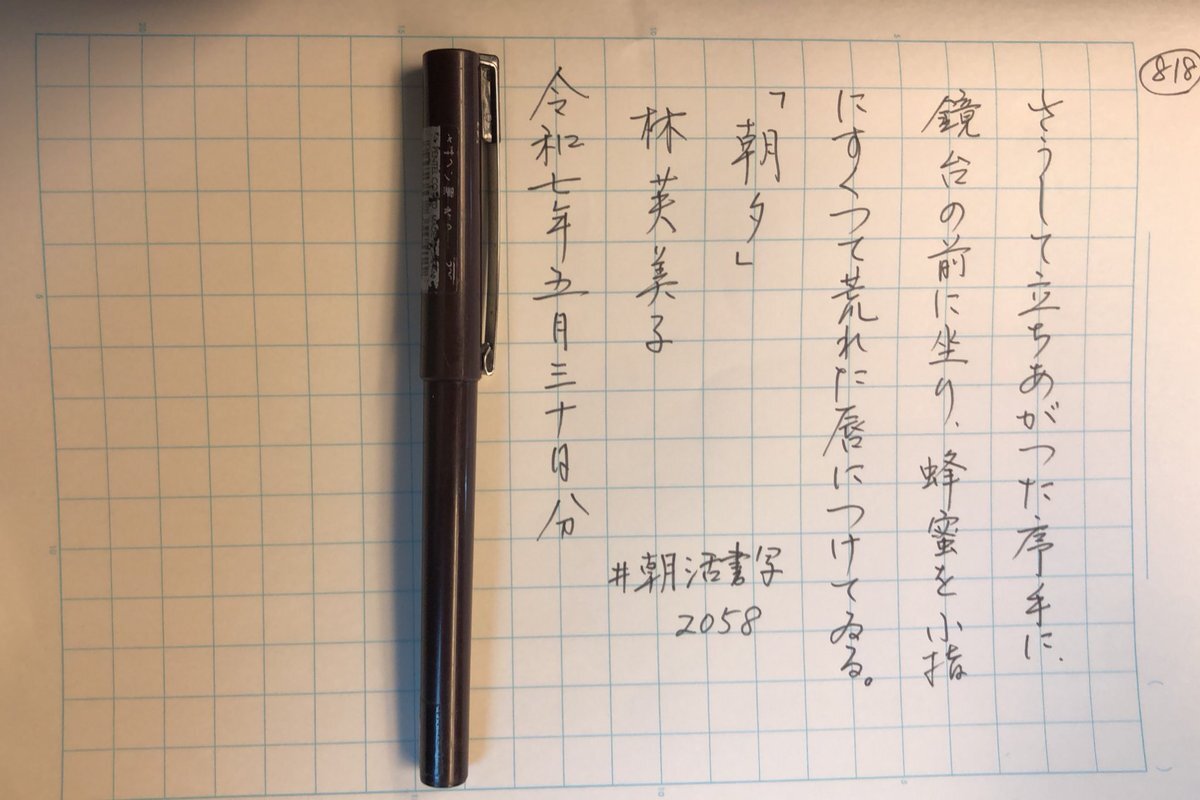 818
さうして立ちあがつた序手に、
鏡台の前に坐り、蜂蜜を小指
にすくつて荒れた唇につけてゐる。
「朝夕」
林芙美子
#朝活書写
2058
令和七年五月三十日分